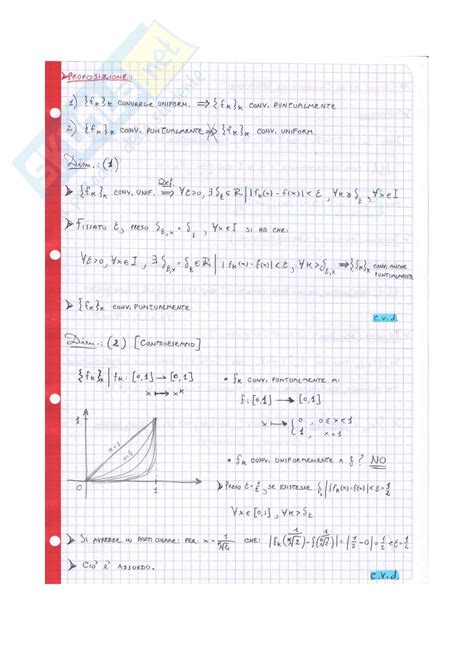 PROPOSIZIONE:
1) {f_K}_K CONVERGE UNIFORM. ⟹ {f_K}_K CONV. PUNTUALMENTE
2) {f_K}_K CONV. PUNTUALMENTE ⇏ {f_K}_K CONV. UNIFORM.
Dim.: (1)
{f_K}_K CONV. UNIF. ⟹ (Def.) ∀ε>0, ∃ δ_ε ∈ ℝ | |f_K(x)-f(x)| < ε, ∀K ≥ δ_ε, ∀x∈I
FISSATO ε, PRESO δ_{ε,x} = δ_ε, ∀x∈I SI HA CHE:
∀ε>0, ∀x∈I, ∃ δ_{ε,x} = δ_ε ∈ ℝ | |f_K(x)-f(x)| < ε, ∀K > δ_{ε,x} ⟹ {f_K}_K CONV. ANCHE PUNTUALMENTE
{f_K}_K CONV. PUNTUALMENTE
c.v.d.
Dim.: (2) [CONTROESEMPIO]
{f_K}_K | f_K: [0,1] → [0,1]
x ↦ x^K
• f_K CONV. PUNTUALMENTE A:
f: [0,1] → [0,1]
x ↦ { 0, 0≤x<1
1, x=1
1
0
1
• f_K CONV. UNIFORMEMENTE A f? NO
PRESO ε=1/2, SE ESISTESSE δ_ε | |f_K(x)-f(x)| < ε = 1/2
∀x∈[0,1], ∀K>δ_ε
SI AVREBBE IN PARTICOLARE: PER: x = 1/ᴷ√2 CHE: |f_K(1/ᴷ√2) - f(1/ᴷ√2)| = |1/2 - 0| = 1/2 < ε = 1/2
CIÒ È ASSURDO.
c.v.d.